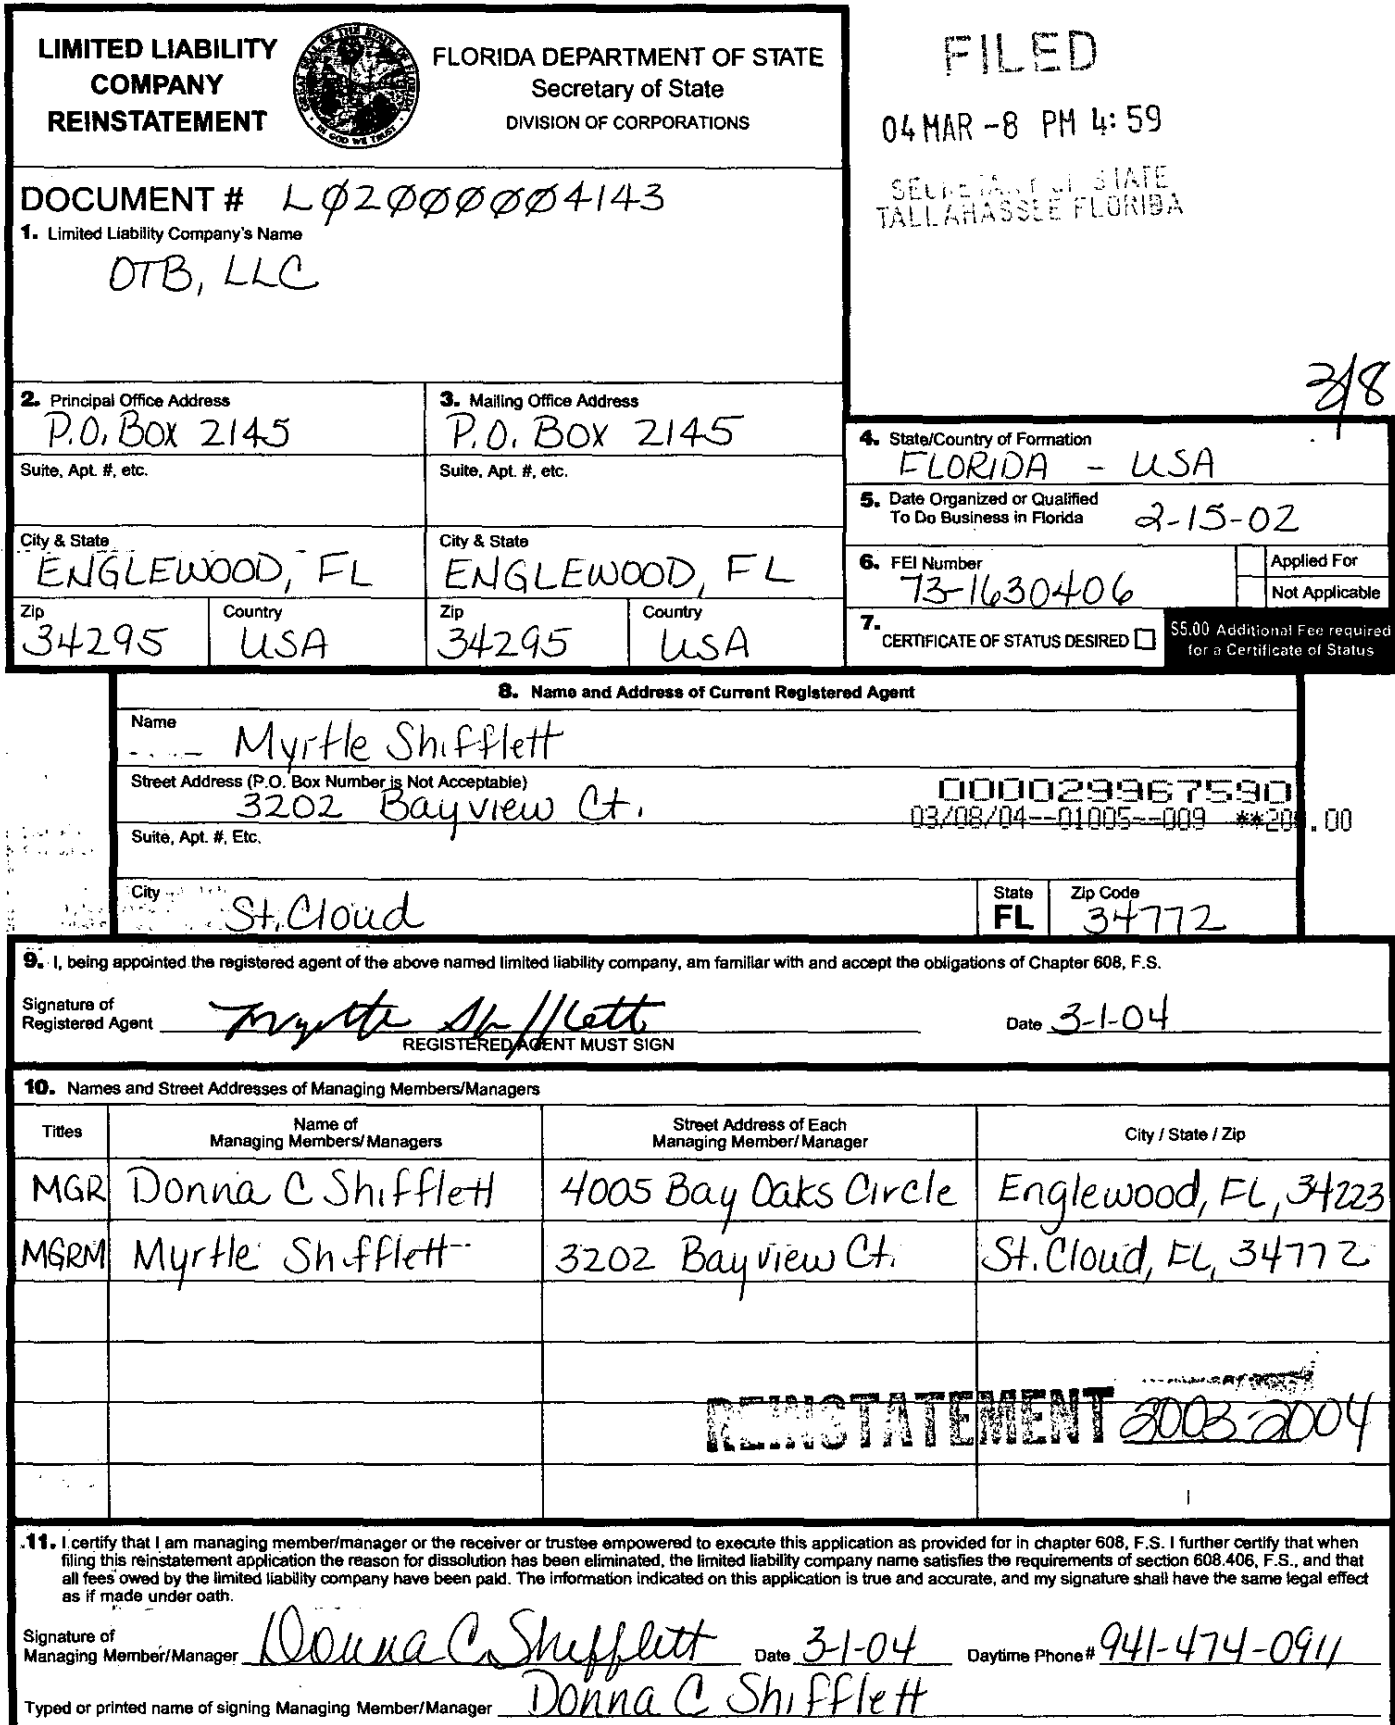 LIMITED LIABILITY
COMPANY
REINSTATEMENT
GREAT SEAL OF THE STATE OF FLORIDA
IN GOD WE TRUST
FLORIDA DEPARTMENT OF STATE
Secretary of State
DIVISION OF CORPORATIONS
FILED
04 MAR -8 PM 4:59
SECRETARY OF STATE
TALLAHASSEE FLORIDA
DOCUMENT # LØ2ØØØØØ4143
1. Limited Liability Company's Name
OTB, LLC
3/8
2. Principal Office Address
P.O. Box 2145
Suite, Apt. #, etc.
City & State
ENGLEWOOD, FL
Zip
34295
Country
USA
3. Mailing Office Address
P.O. Box 2145
Suite, Apt. #, etc.
City & State
ENGLEWOOD, FL
Zip
34295
Country
USA
4. State/Country of Formation
FLORIDA - USA
5. Date Organized or Qualified
To Do Business in Florida 2-15-02
6. FEI Number
73-1630406
Applied For
Not Applicable
7. CERTIFICATE OF STATUS DESIRED
$5.00 Additional Fee required
for a Certificate of Status
8. Name and Address of Current Registered Agent
Name
Myrtle Shifflett
Street Address (P.O. Box Number is Not Acceptable)
3202 Bayview Ct.
000029967590
03/08/04--01005--009 **200.00
Suite, Apt. #, Etc.
City
St. Cloud
State
FL
Zip Code
34772
9. I, being appointed the registered agent of the above named limited liability company, am familiar with and accept the obligations of Chapter 608, F.S.
Signature of
Registered Agent Myrtle Shifflett Date 3-1-04
REGISTERED AGENT MUST SIGN
10. Names and Street Addresses of Managing Members/Managers
Titles Name of Managing Members/Managers Street Address of Each Managing Member/Manager City / State / Zip
MGR Donna C Shifflett 4005 Bay Oaks Circle Englewood, FL, 34223
MGRM Myrtle Shifflett 3202 Bayview Ct. St. Cloud, FL, 34772
REINSTATEMENT 2003-2004
11. I certify that I am managing member/manager or the receiver or trustee empowered to execute this application as provided for in chapter 608, F.S. I further certify that when
filing this reinstatement application the reason for dissolution has been eliminated, the limited liability company name satisfies the requirements of section 608.406, F.S., and that
all fees owed by the limited liability company have been paid. The information indicated on this application is true and accurate, and my signature shall have the same legal effect
as if made under oath.
Signature of
Managing Member/Manager Donna C. Shifflett Date 3-1-04 Daytime Phone # 941-474-0911
Typed or printed name of signing Managing Member/Manager Donna C Shifflett